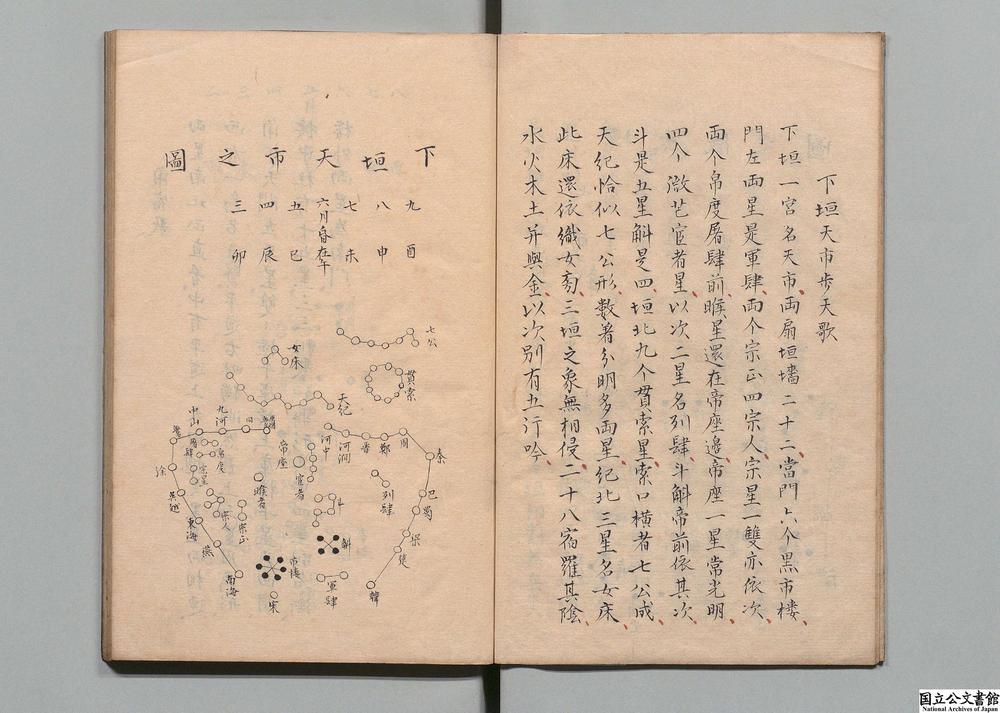 下垣天市步天歌
下垣一宮名天市、両扇垣墻二十二、當門六个黒市楼、
門左両星是軍肆、両个宗正四宗人、宗星一雙亦依次、
両个帛度屠肆前、睺星還在帝座邉、帝座一星常光明、
四个微茫宦者星、以次二星名列肆、斗斛帝前依其次、
斗是五星斛是四、垣北九个貫索星、索口横者七公成、
天紀恰似七公形、數著分明多両星、紀北三星名女床、
此床還依織女旁、三垣之象無相侵、二十八宿羅其陰、
水火木土并與金、以次別有五行吟、
下垣天市之圖
九 酉
八 申
七 未
六月昏在午
五 巳
四 辰
三 卯
七公
貫索
女床
天紀
秦
周
鄭
晋
河澗
河中
巴
蜀
梁
楚
韓
列肆
斗
斛
軍肆
宦者
帝座
睺者
市楼
宋
九河
中山
屠肆
帛度
宗星
宗人
宗正
徐
呉越
東海
燕
南海
国立公文書館
National Archives of Japan